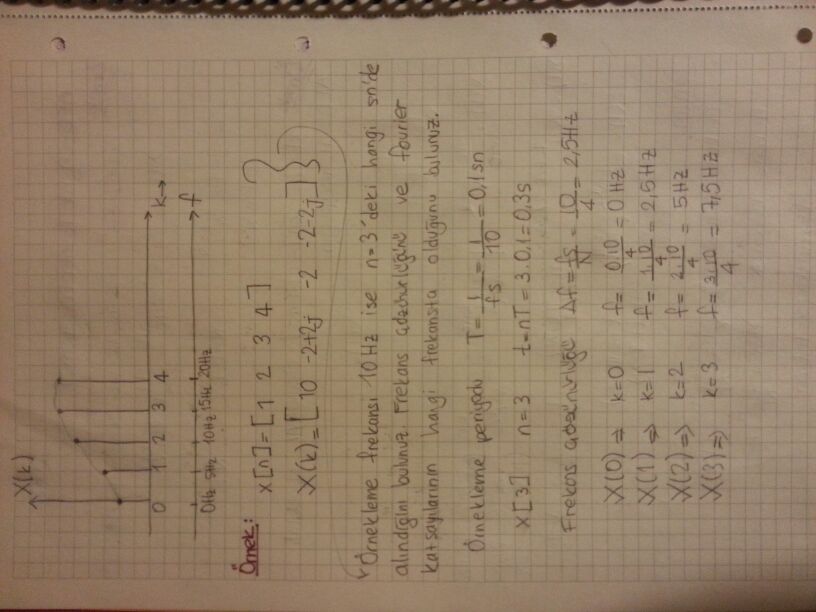 X(k)
0 1 2 3 4 k→
0Hz 5Hz 10Hz 15Hz 20Hz f
Örnek:
x[n]=[1 2 3 4]
X(k)=[10 -2+2j -2 -2-2j]
Örnekleme frekansı 10 Hz ise n=3'deki hangi sn'de
alındığını bulunuz. Frekans adzınurluğunu ve fourier
katsayılarının hangi frekansta olduğunu bulunuz.
Örnekleme periyodu T=1/fs=1/10=0,1sn
x[3] n=3 t=nT=3.0,1=0,3s
Frekans Δf=fs/N=10/4=2,5Hz
X(0)⇒ k=0 f=0.10/4=0Hz
X(1)⇒ k=1 f=1.10/4=2,5Hz
X(2)⇒ k=2 f=2.10/4=5Hz
X(3)⇒ k=3 f=3.10/4=7,5Hz